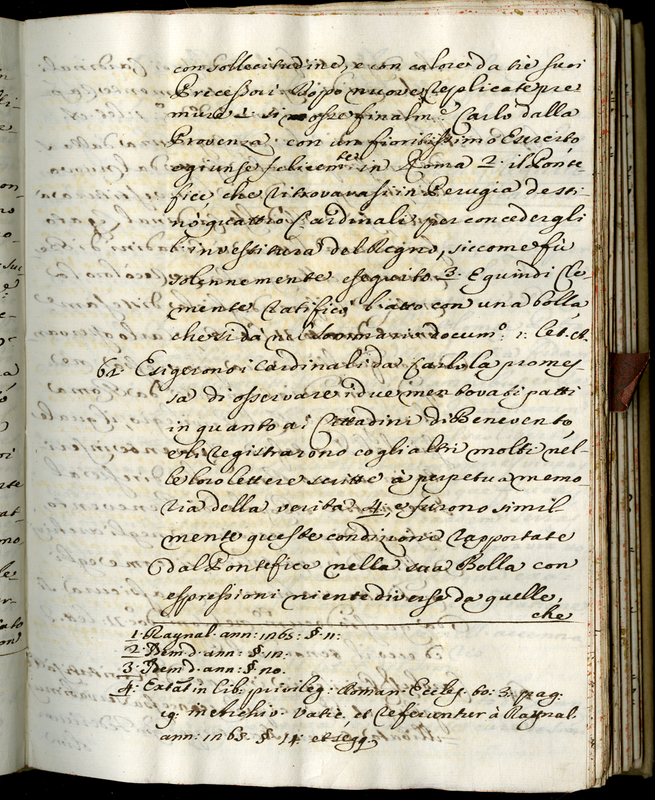 con sollecitudine, e con calore da tre suoi
Precessori. Dopo nuove, replicate pre-
mure 1: si mosse finalm.e Carlo dalla
Provenza, con un fioritissimo Esercito
e giunse felicem.te in Roma 2: il Ponte-
fice, che ritrovavasi in Perugia desti-
nò quattro Cardinali per concedergli
l'investitura del Regno, siccome fù
solennemente eseguito 3: E quindi Cle-
mente ratificò l'atto con una bolla
che si dà nel Sommario docum.o 1: let. A.
61. Esigerono i Cardinali da Carlo la promes-
sa di osservare i due mentovati patti
in quanto ai Cittadini di Benevento,
e li registrarono cogli altri molti nel-
le loro lettere scritte à perpetua memo
ria della verità 4; e furono simil-
mente queste condizioni rapportate
dal Pontefice nella sua Bolla con
espressioni niente diverse da quelle,
che
1: Raynal. ann: 1265: §. 11:
2: Idem d. ann: §. 12:
3: Idem d. ann: § 20.
4: Extat in lib: privileg: Roman: Eccles. 60: 3: pag:
in Archivio: Vatic. et referuntur à Raynal.
ann: 1265: §. 14: et seqq.